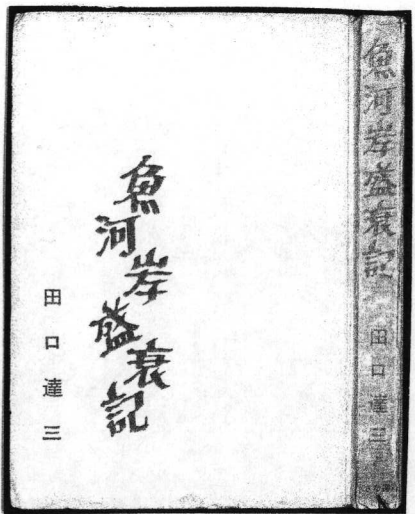 魚河岸盛衰記
田口達三
魚河岸盛衰記
田口達三